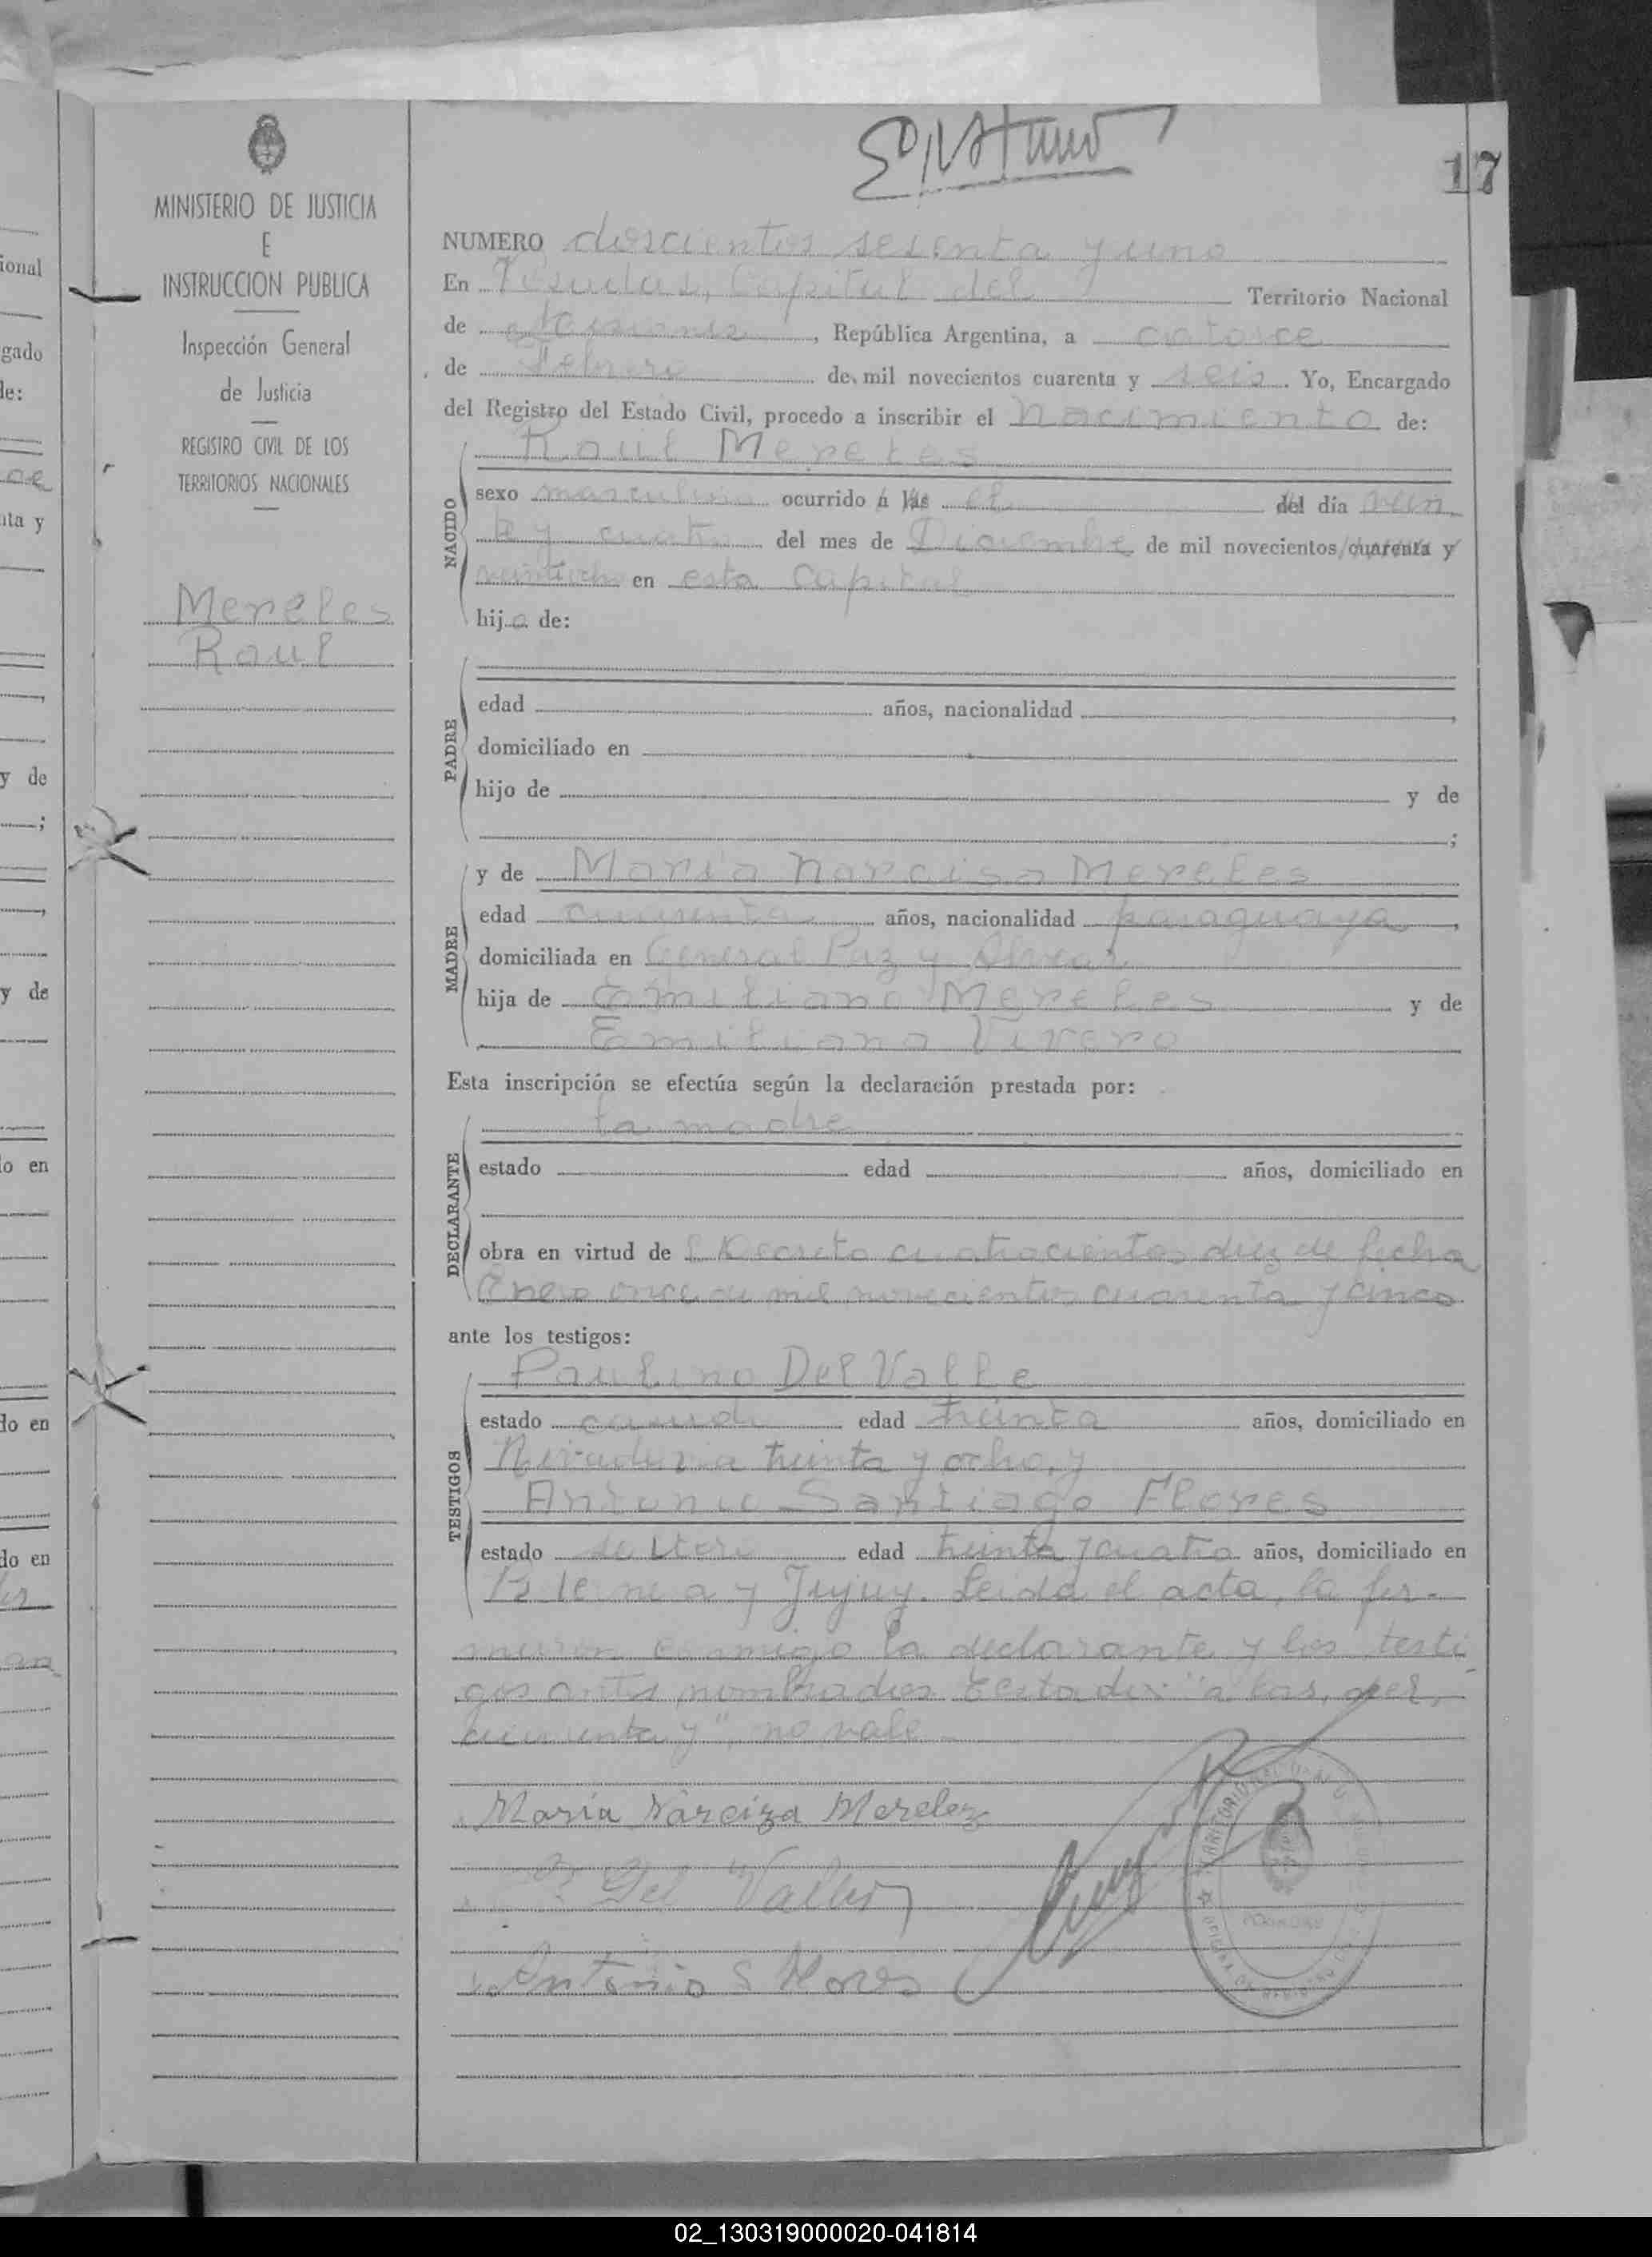 17
MINISTERIO DE JUSTICIA
E
INSTRUCCION PUBLICA
Inspección General
de Justicia
REGISTRO CIVIL DE LOS
TERRITORIOS NACIONALES
Mereles
Raul
NUMERO doscientos sesenta y uno
En Posadas, Capital del Territorio Nacional
de Misiones, República Argentina, a catorce
de Febrero de mil novecientos cuarenta y seis. Yo, Encargado
del Registro del Estado Civil, procedo a inscribir el nacimiento de:
Raul Mereles
NACIDO
sexo masculino ocurrido á las el del día vein
te y cuatro del mes de Diciembre de mil novecientos cuarenta y
veintiocho en esta Capital
hijo de:
PADRE
edad años, nacionalidad ,
domiciliado en
hijo de y de
;
MADRE
y de Maria Narcisa Mereles
edad cuarenta años, nacionalidad paraguaya,
domiciliada en General Paz y Alvear
hija de Emiliano Mereles y de
Emiliana Vivero
Esta inscripción se efectúa según la declaración prestada por:
DECLARANTE
la madre
estado edad años, domiciliado en
obra en virtud del Decreto cuatrocientos diez de fecha
Enero once de mil novecientos cuarenta y cinco
ante los testigos:
TESTIGOS
Paulino Del Valle
estado casado edad treinta años, domiciliado en
Rivadavia treinta y ocho, y
Antonio Santiago Flores
estado soltero edad treinta y cuatro años, domiciliado en
y Jujuy. Leida el acta, la fir-
maron conmigo la declarante y los testi
gos antes nombrados. Testado: "a las, del,
cuarenta y", no vale
María Narciza Merelez
P. Del Valle
Antonio S Flores
02_130319000020-041814